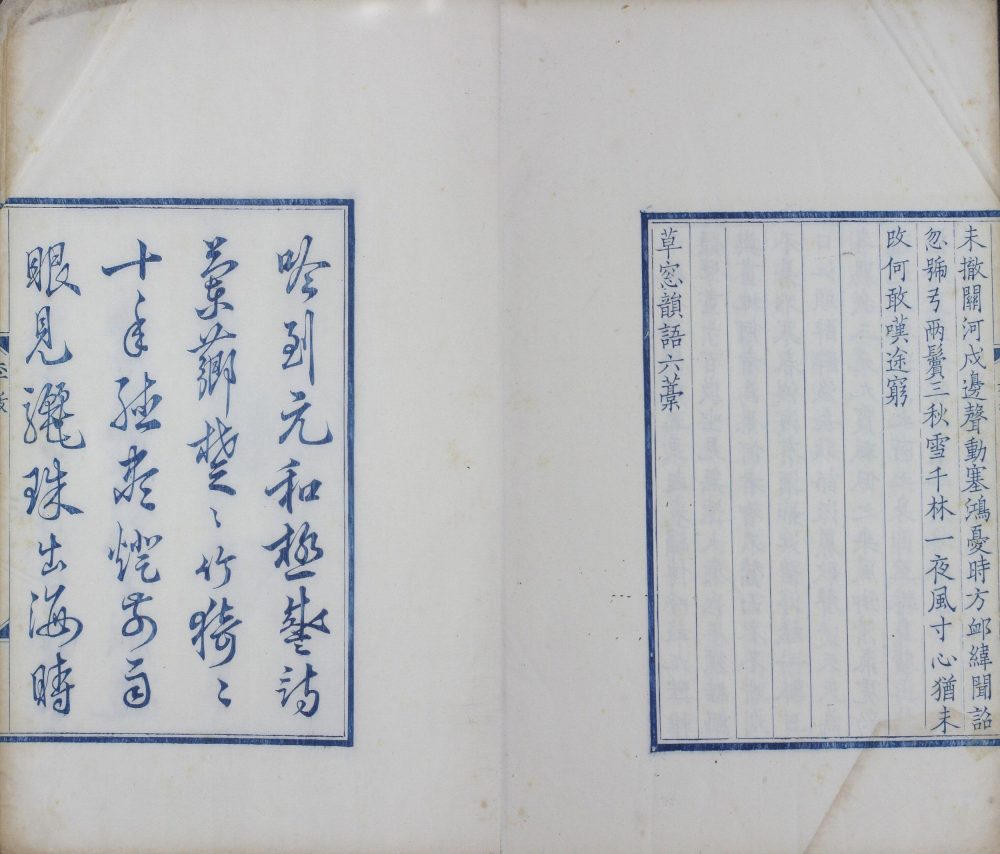 未撤關河戍邊聲動塞鴻憂時方䘏緯聞詔
忽號弓兩鬢三秋雪千林一夜風寸心猶未
改何敢嘆途窮
草窓韻語六藁
吟到元和極盛詩
蘭薌楚〻竹猗〻
十年聽盡燈前雨
眼見驪珠出海時